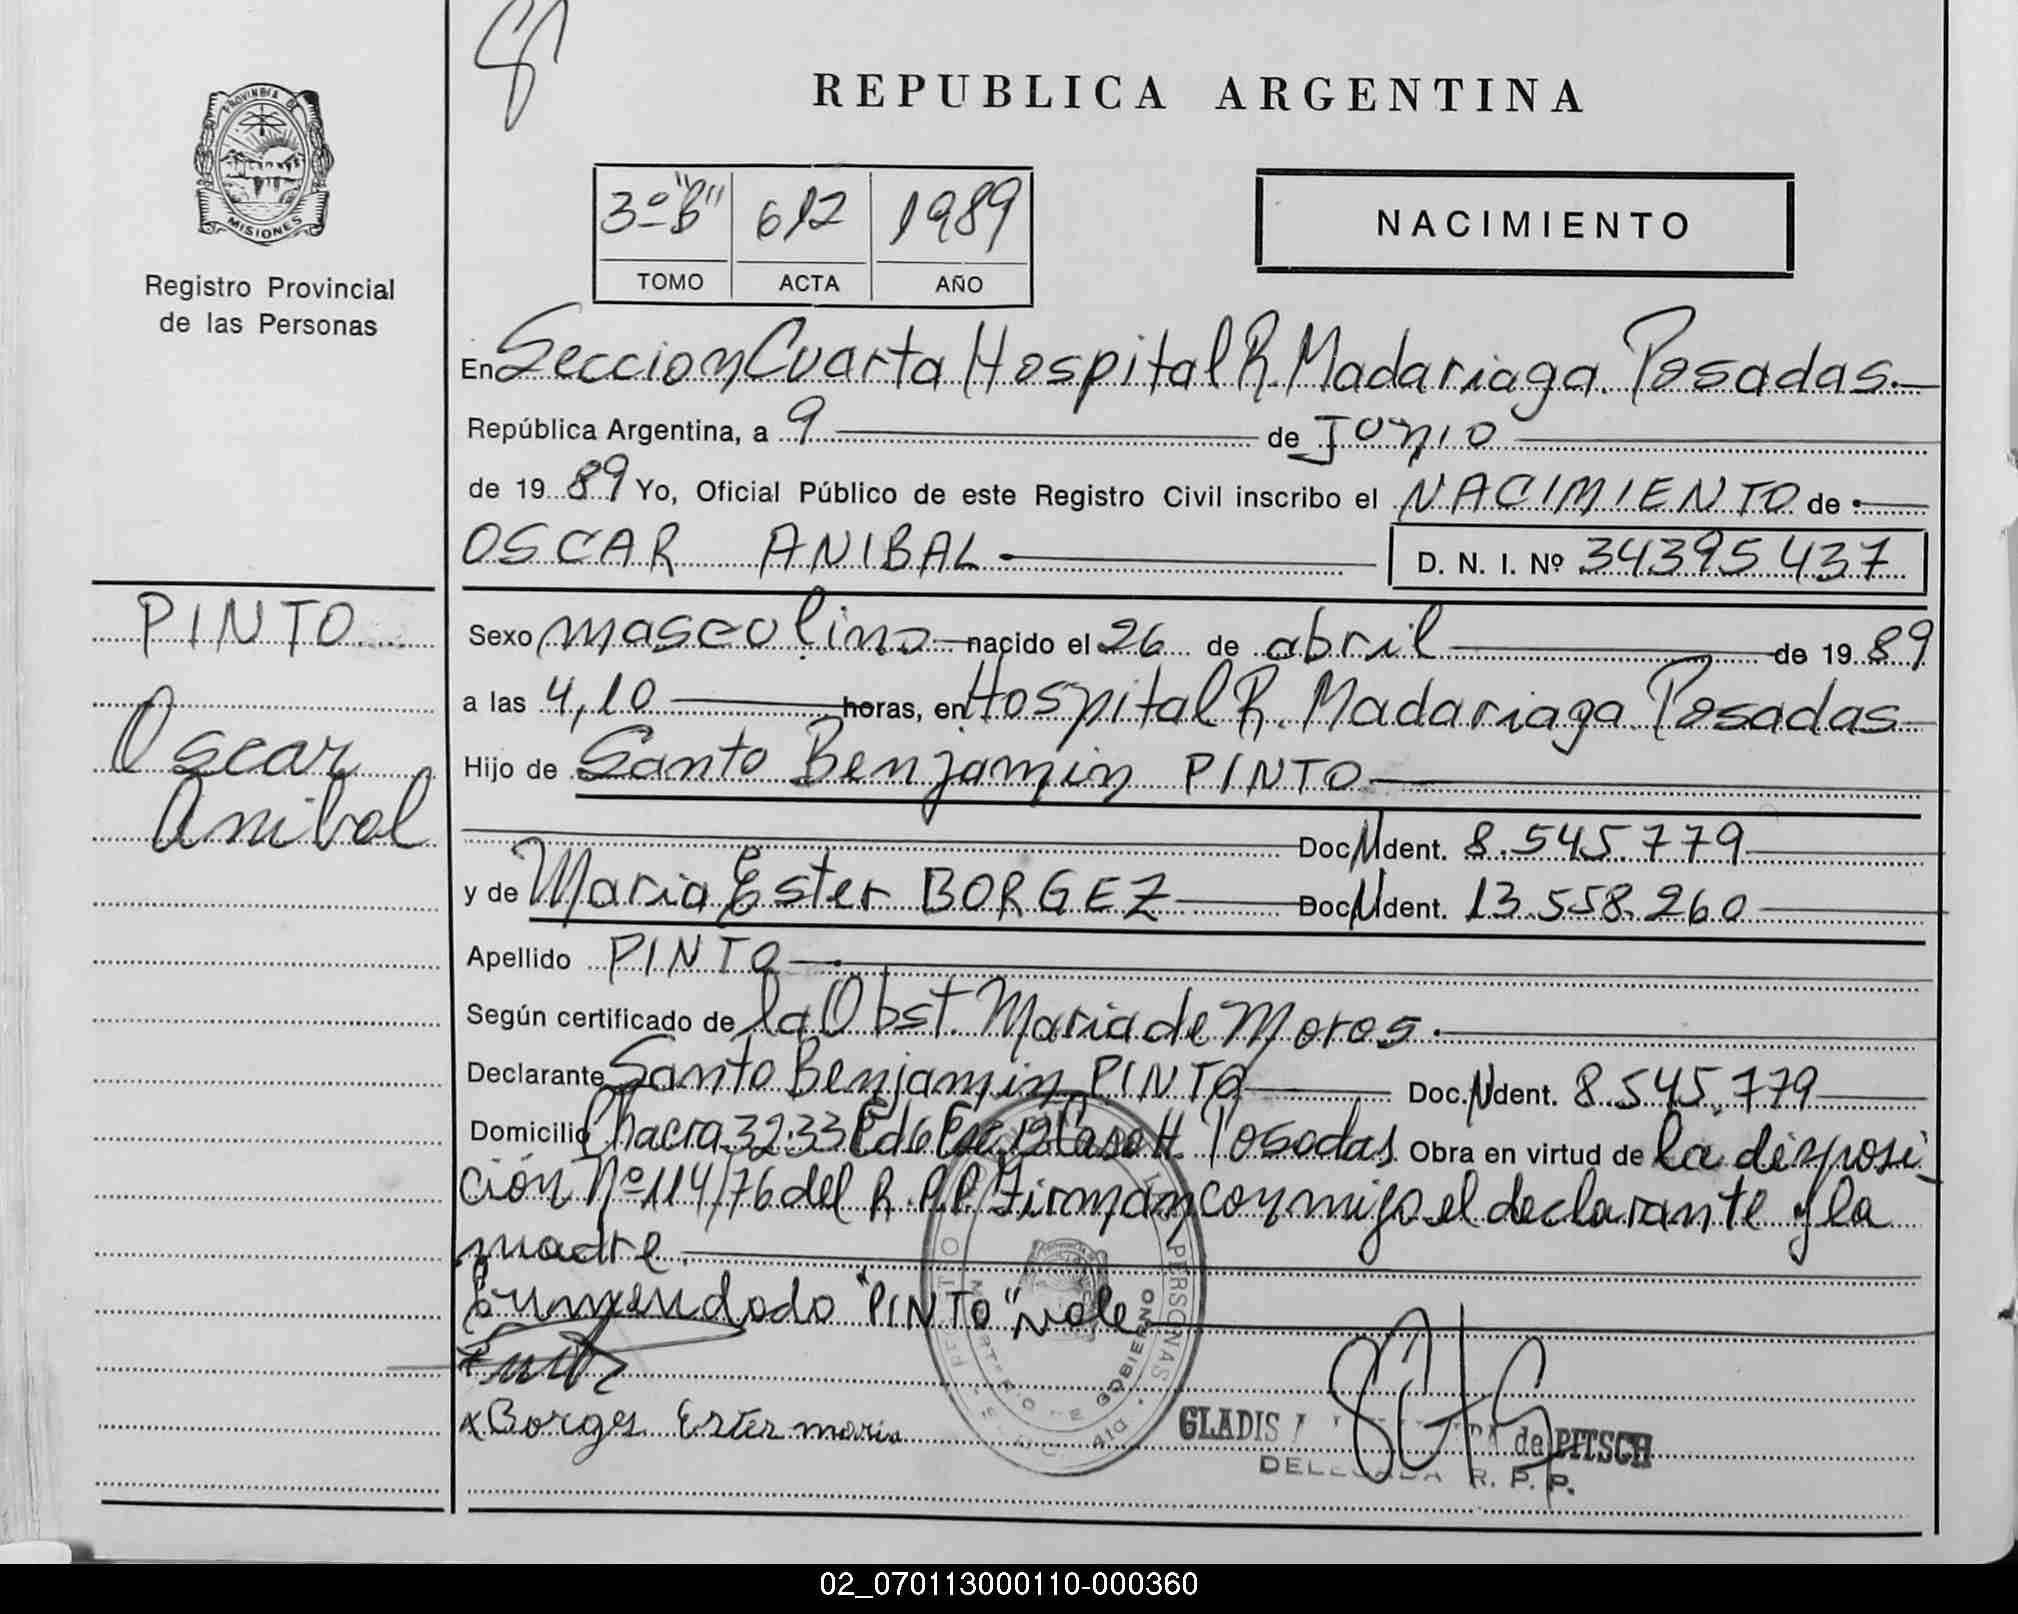 REPUBLICA ARGENTINA
PROVINCIA DE
MISIONES
Registro Provincial
de las Personas
3º "B" 612 1989
TOMO ACTA AÑO
NACIMIENTO
En Seccion Cuarta Hospital R. Madariaga. Posadas.
República Argentina, a 9 de Junio
de 1989 Yo, Oficial Público de este Registro Civil inscribo el NACIMIENTO de
OSCAR ANIBAL D. N. I. Nº 34395437
PINTO
Oscar
Anibal
Sexo masculino nacido el 26 de abril de 1989
a las 4,10 horas, en Hospital R. Madariaga Posadas
Hijo de Santo Benjamin PINTO
Doc. Ident. 8.545.779
y de Maria Ester BORGEZ Doc. Ident. 13.558.260
Apellido PINTO
Según certificado de la Obst. Maria de Moros.
Declarante Santo Benjamin PINTO Doc. Ident. 8.545.779
Domicilio Chacra 32.33 Ed 6 Esc 12 Casa H. Posadas Obra en virtud de la disposi
ción Nº 114/76 del R.P.P. Firman conmigo el declarante y la
madre.
Enmendado "PINTO" vale
x Borges Ester maria
GLADIS de PITSCH
DELEGADA R. P. P.
PERSONAS
GOBIERNO
02_070113000110-000360